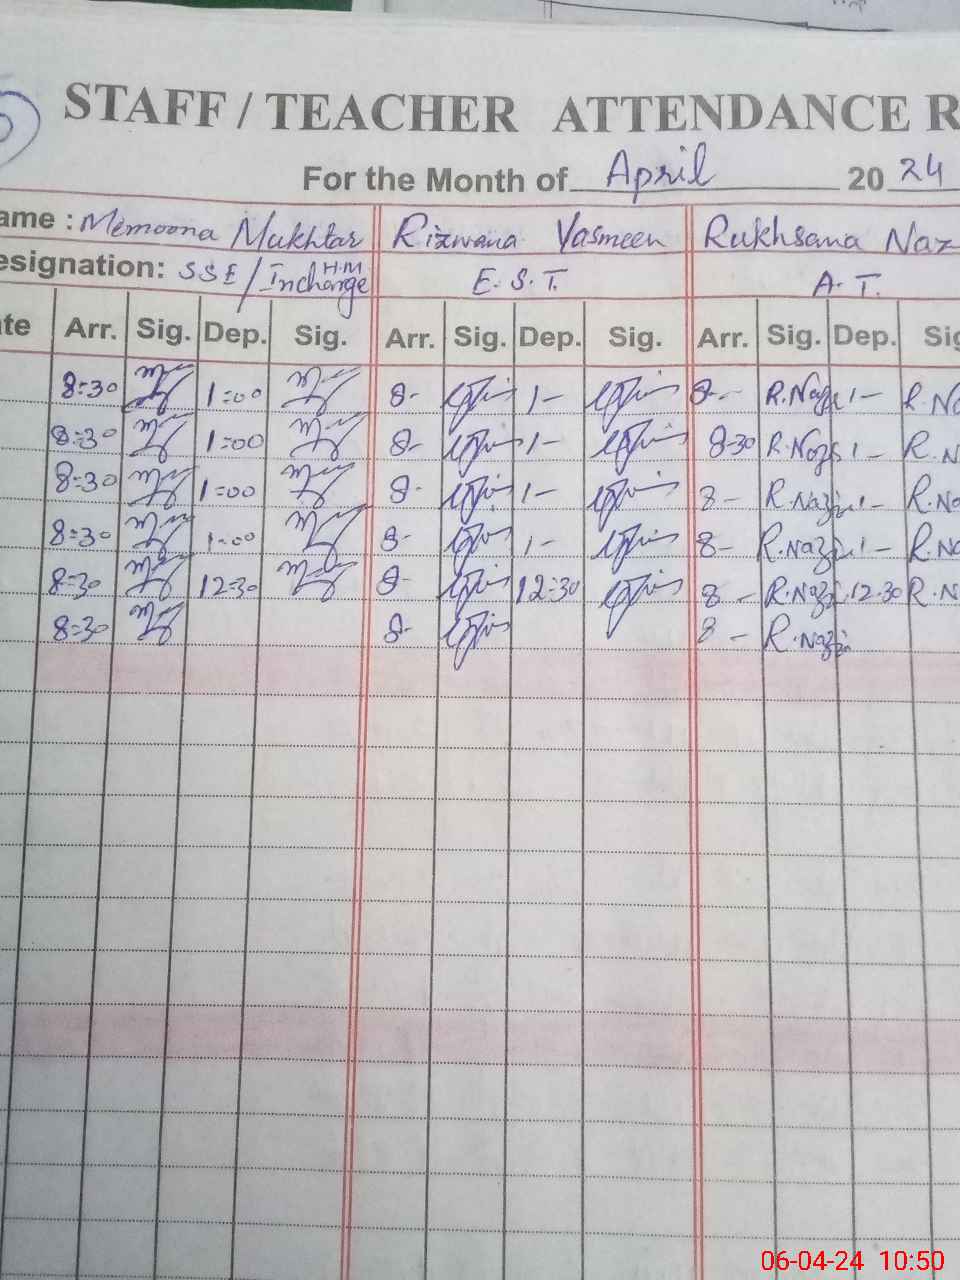 STAFF / TEACHER ATTENDANCE R
For the Month of April 20 24
ame : Memoona Mukhtar Rizwana Yasmeen Rukhsana Naz
esignation: SSE / Incharge H.M E.S.T. A.T.
te Arr. Sig. Dep. Sig. Arr. Sig. Dep. Sig. Arr. Sig. Dep. Sig
8=30 1=00 8- 1- 8-- R.Naz 1- R.Na
8=30 1=00 8- 1- 8-30 R.Naz 1- R.N
8=30 1=00 8- 1- 8- R.Naz 1- R.Na
8=30 1=00 8- 1- 8- R.Naz 1- R.Na
8=30 12=30 8- 12=30 8- R.Naz 12-30 R.N
8=30 8- 8- R.Naz
06-04-24 10:50